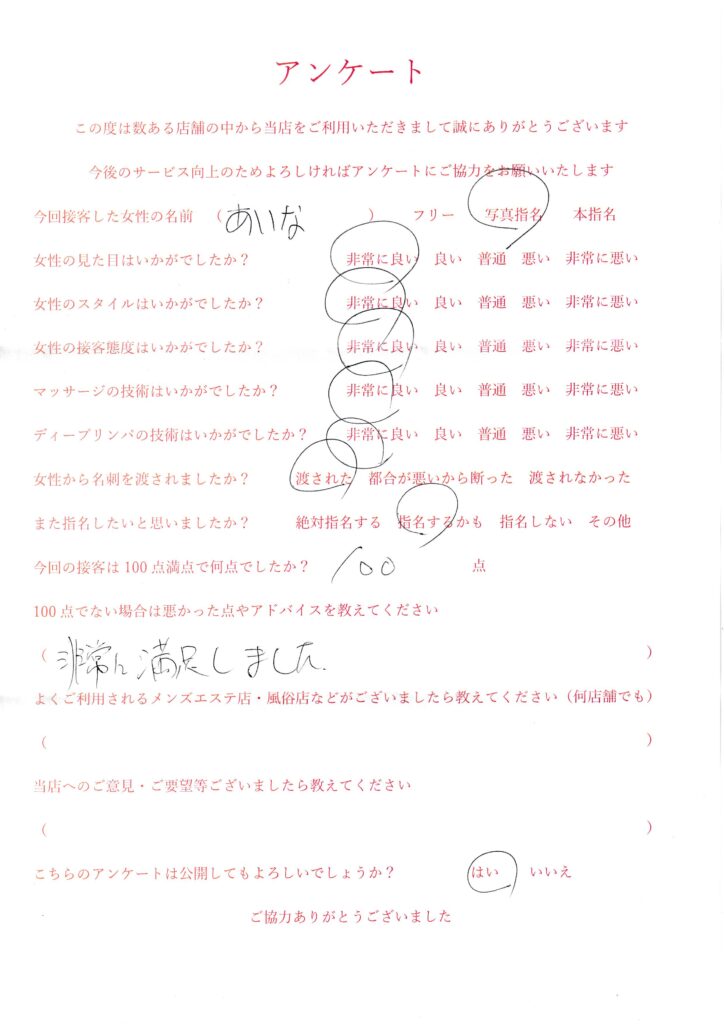 アンケート
この度は数ある店舗の中から当店をご利用いただきまして誠にありがとうございます
今後のサービス向上のためよろしければアンケートにご協力をお願いいたします
今回接客した女性の名前 （ あいな ） フリー 写真指名 本指名
女性の見た目はいかがでしたか？ 非常に良い 良い 普通 悪い 非常に悪い
女性のスタイルはいかがでしたか？ 非常に良い 良い 普通 悪い 非常に悪い
女性の接客態度はいかがでしたか？ 非常に良い 良い 普通 悪い 非常に悪い
マッサージの技術はいかがでしたか？ 非常に良い 良い 普通 悪い 非常に悪い
ディープリンパの技術はいかがでしたか？ 非常に良い 良い 普通 悪い 非常に悪い
女性から名刺を渡されましたか？ 渡された 都合が悪いから断った 渡されなかった
また指名したいと思いましたか？ 絶対指名する 指名するかも 指名しない その他
今回の接客は100点満点で何点でしたか？ 100 点
100点でない場合は悪かった点やアドバイスを教えてください
（ 非常に満足しました. ）
よくご利用されるメンズエステ店・風俗店などがございましたら教えてください（何店舗でも）
（ ）
当店へのご意見・ご要望等ございましたら教えてください
（ ）
こちらのアンケートは公開してもよろしいでしょうか？ はい いいえ
ご協力ありがとうございました